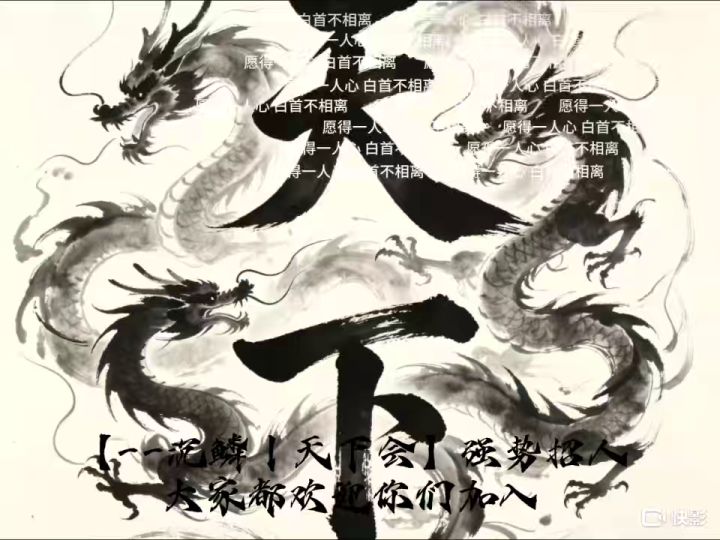 白首不相离
一人心
愿得一 白首不相离
一人心 白首不相离
愿得一人心 白首不相离 不相离 愿得一
愿得一人心 白首不相离 愿得一人心 白首不相
一人心 白首不相离 愿得一人心 白首不相离
得一人 白首不相离 得一 心 白首不相离
天
下
【--沉鳞丨天下会】强势招人
大家都欢迎你们加入
快影